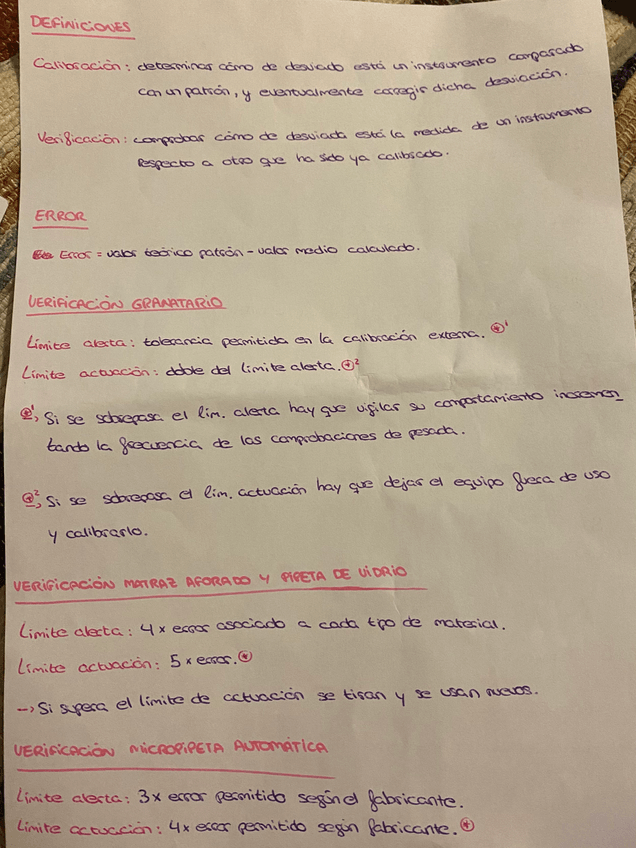 DEFINICIONES
Calibración: determinar cómo de desviado está un instrumento comparado
con un patrón, y eventualmente corregir dicha desviación.
Verificación: comprobar cómo de desviada está la medida de un instrumento
respecto a otro que ha sido ya calibrado.
ERROR
Error = valor teórico patrón - valor medio calculado.
VERIFICACIÓN GRANATARIO
Límite alerta: tolerancia permitida en la calibración externa. *¹
Límite actuación: doble del límite alerta. *²
*¹ → Si se sobrepasa el lim. alerta hay que vigilar su comportamiento incremen
tando la frecuencia de las comprobaciones de pesada.
*² → Si se sobrepasa el lim. actuación hay que dejar el equipo fuera de uso
y calibrarlo.
VERIFICACIÓN MATRAZ AFORADO Y PIPETA DE VIDRIO
Límite alerta: 4 x error asociado a cada tipo de material.
Límite actuación: 5 x error. *
→ Si supera el límite de actuación se tiran y se usan nuevos.
VERIFICACIÓN MICROPIPETA AUTOMÁTICA
Límite alerta: 3 x error permitido según el fabricante.
Límite actuación: 4 x error permitido según fabricante. *